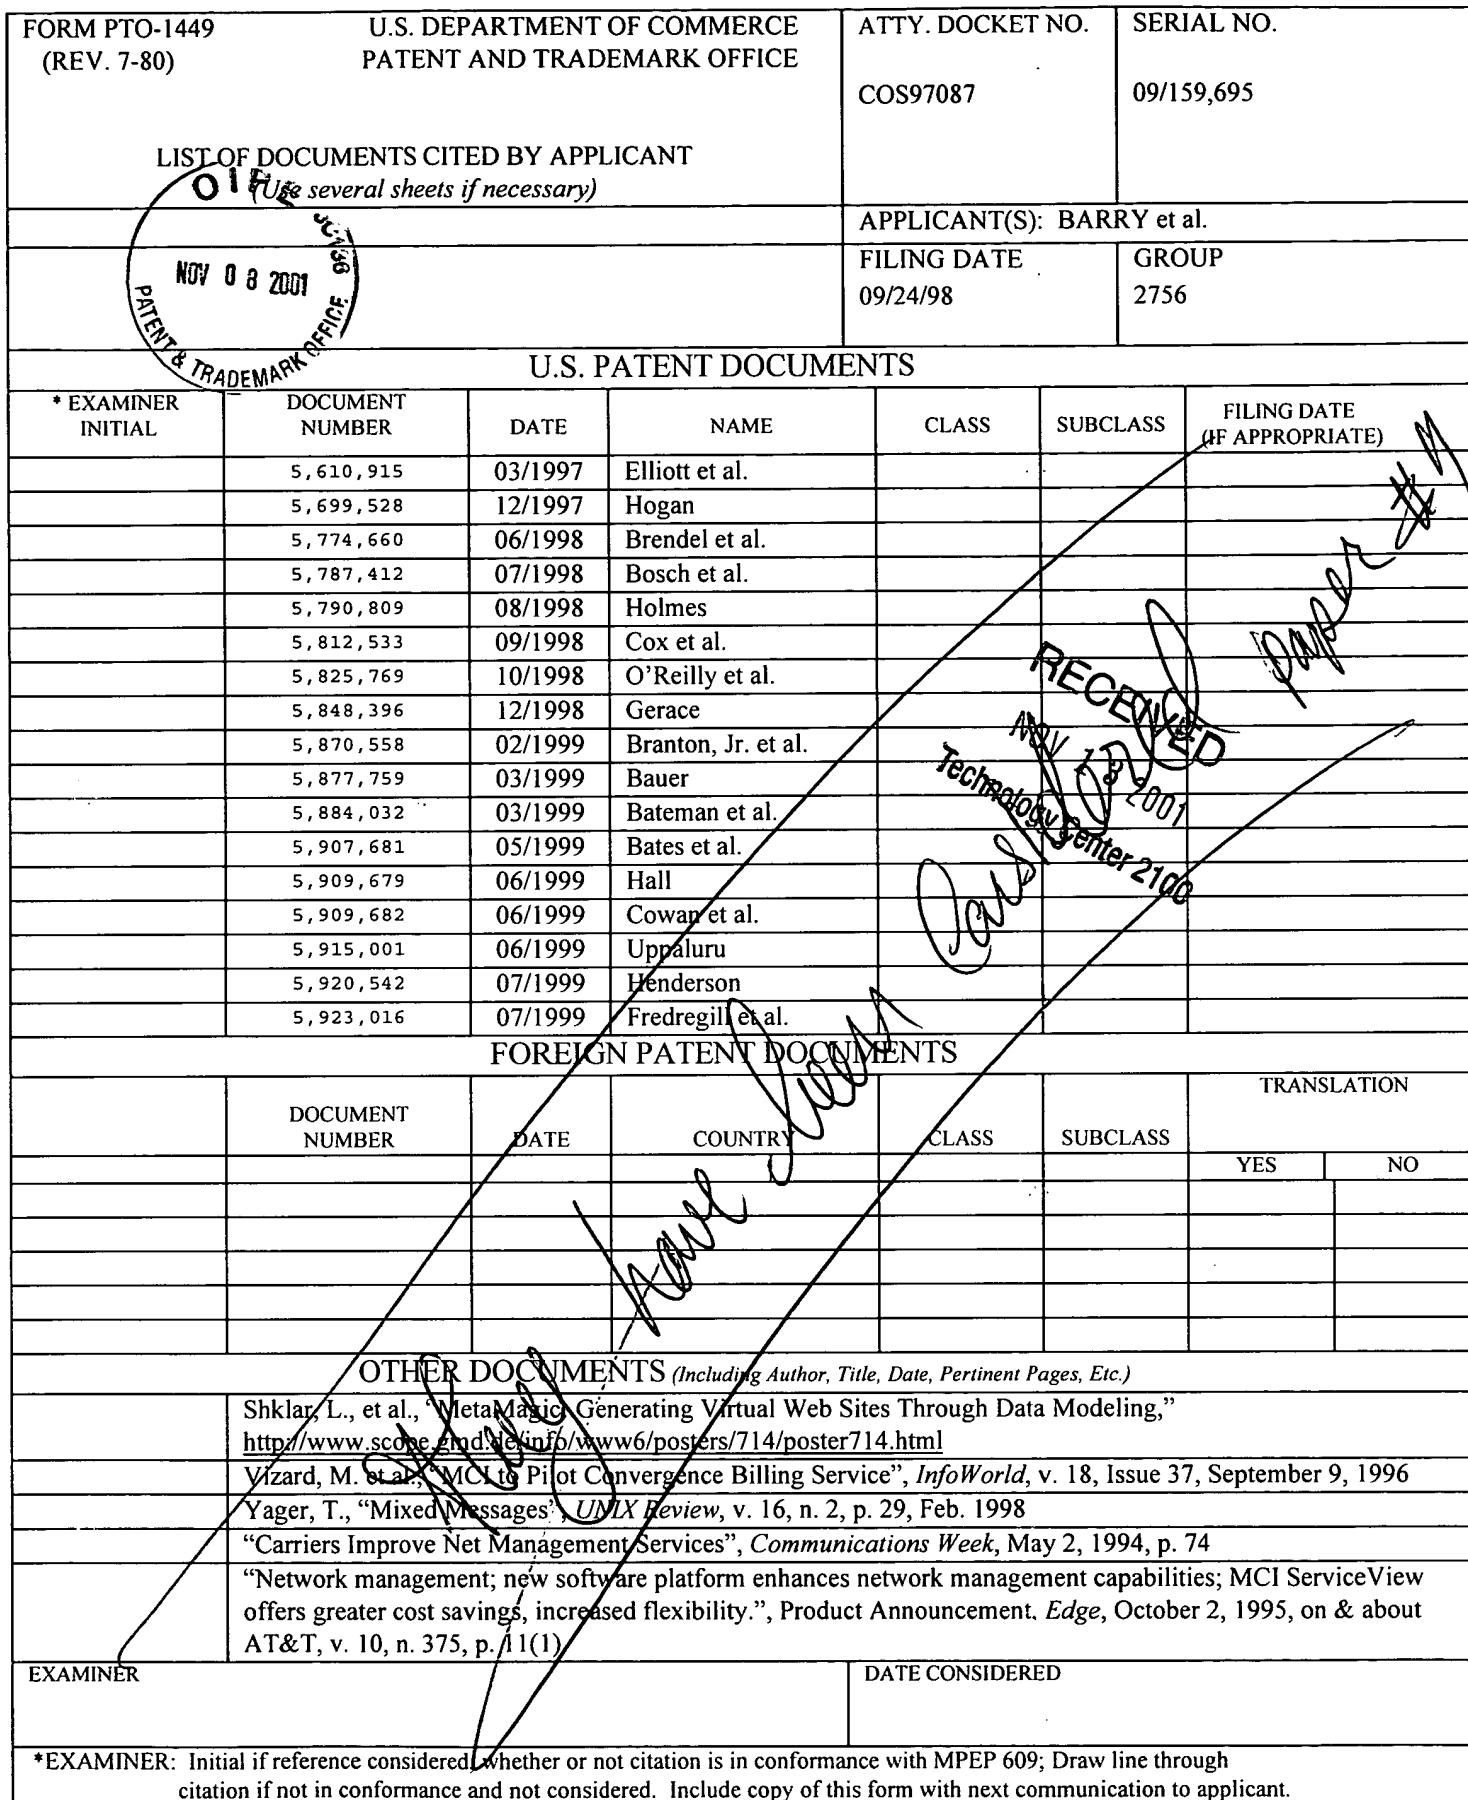 FORM PTO-1449 U.S. DEPARTMENT OF COMMERCE ATTY. DOCKET NO. SERIAL NO.
(REV. 7-80) PATENT AND TRADEMARK OFFICE
COS97087 09/159,695
LIST OF DOCUMENTS CITED BY APPLICANT
(Use several sheets if necessary)
OIPE
NOV 08 2001
PATENT & TRADEMARK OFFICE
APPLICANT(S): BARRY et al.
FILING DATE GROUP
09/24/98 2756
U.S. PATENT DOCUMENTS
* EXAMINER DOCUMENT FILING DATE
INITIAL NUMBER DATE NAME CLASS SUBCLASS (IF APPROPRIATE)
5,610,915 03/1997 Elliott et al.
5,699,528 12/1997 Hogan
5,774,660 06/1998 Brendel et al.
5,787,412 07/1998 Bosch et al.
5,790,809 08/1998 Holmes
5,812,533 09/1998 Cox et al.
5,825,769 10/1998 O'Reilly et al.
5,848,396 12/1998 Gerace
5,870,558 02/1999 Branton, Jr. et al.
5,877,759 03/1999 Bauer
5,884,032 03/1999 Bateman et al.
5,907,681 05/1999 Bates et al.
5,909,679 06/1999 Hall
5,909,682 06/1999 Cowan et al.
5,915,001 06/1999 Uppaluru
5,920,542 07/1999 Henderson
5,923,016 07/1999 Fredregill et al.
RECEIVED
NOV 13 2001
Technology Center 2100
They have been
paper #
FOREIGN PATENT DOCUMENTS
TRANSLATION
DOCUMENT
NUMBER DATE COUNTRY CLASS SUBCLASS
YES NO
OTHER DOCUMENTS (Including Author, Title, Date, Pertinent Pages, Etc.)
Shklar, L., et al., "MetaMagic: Generating Virtual Web Sites Through Data Modeling,"
http://www.scope.gmd.de/info/www6/posters/714/poster714.html
Vizard, M. et al., "MCI to Pilot Convergence Billing Service", InfoWorld, v. 18, Issue 37, September 9, 1996
Yager, T., "Mixed Messages", UNIX Review, v. 16, n. 2, p. 29, Feb. 1998
"Carriers Improve Net Management Services", Communications Week, May 2, 1994, p. 74
"Network management; new software platform enhances network management capabilities; MCI ServiceView
offers greater cost savings, increased flexibility.", Product Announcement. Edge, October 2, 1995, on & about
AT&T, v. 10, n. 375, p. 11(1)
EXAMINER DATE CONSIDERED
*EXAMINER: Initial if reference considered, whether or not citation is in conformance with MPEP 609; Draw line through
citation if not in conformance and not considered. Include copy of this form with next communication to applicant.